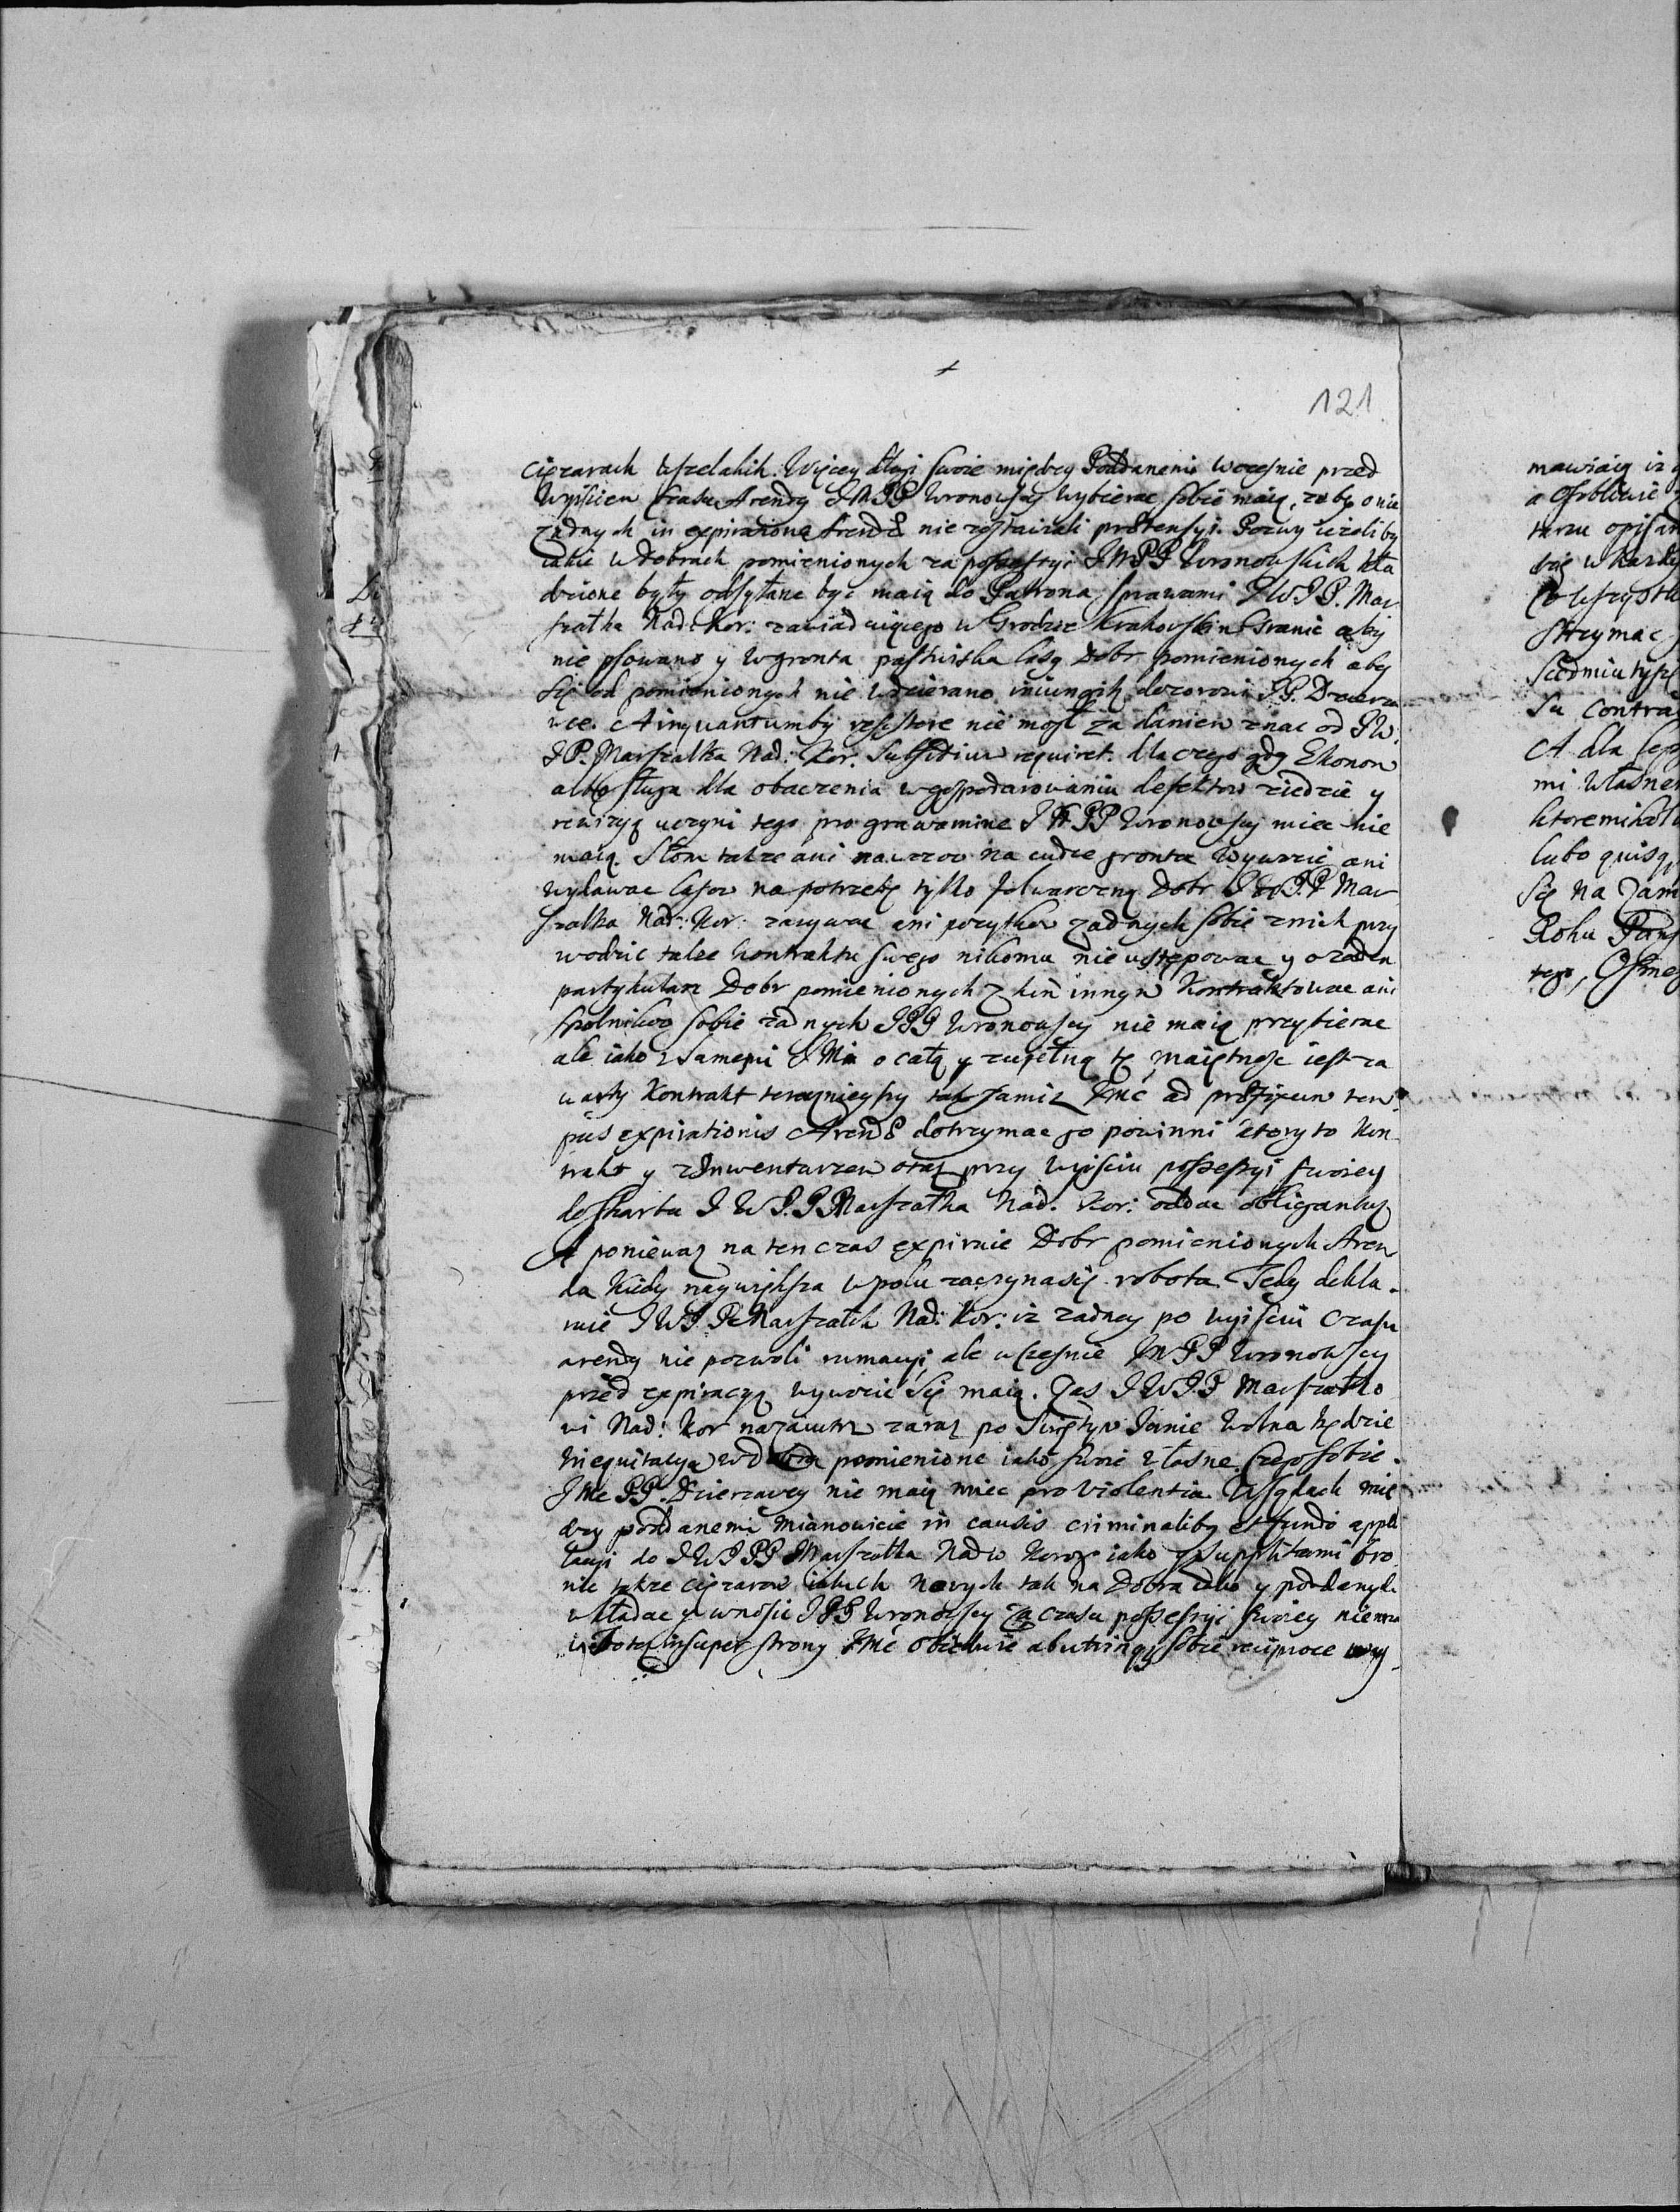 121
ciężarach wszelakich. Więcey długi swoie między Poddanemi wczesnie przed
Wyisciem Czasu Arendy IMPP Wronowscy wybierac sobie maią, żeby o nie
żadnych in expiratione Arendę nie zostawiali pretensyi. Pozwy ieżeliby
iakie w Dobrach pomienionych za possessyi IMPP Wronowskich kła
dzione były odsyłane być maią do Patrona sprawami IWJP. Mar
szałka Nad: Kor: zawiaduiącego w Grodzie Krakowskim Granic aby
nie psowano y w gronta pastwiska lasy Dobr pomienionych aby
się od pomienionych nie wdzierano iniungitz dozorowi PP. Dzierza
wce. A inquantumby resistere nie mogł za daniem znac od IW.
JP. Marszałka Nad: Kor. Subsidium requiret. dla czego gdy Ekonom
albo sługa dla obaczenia w gospodarowaniu defektow ziedzie y
rewizyą uczyni tego pro gravamine IMPP Wronowscy miec nie
maią. Słom także ani nawozow na cudze gronta wywozic ani
wydawac lasow na potrzebę tylko folwarczną Dobr IWJP Mar
szałka Nad: Kor. zazywac ani pozytkow żadnych sobie z nich przy
wodzic także kontraktu swego nikomu nie ustępowac y o żadne
partykularne Dobr pomienionych z kim innym kontraktowac ani
spolnikow sobie żadnych IPP Wronowscy nie maią przybierac
ale iako z samemi IMci o całą y zupełną tę maiętnosc iest za
warty Kontrakt terazniejszy tak sami Ichmc ad prefixum tem
pus expirationis Arendę dotrzymac go powinni ktory to Kon
trakt y z Inwentarzem oraz przy wyisciu possessyi swoiey
do skarbu IWJ.P Marszałka Nad. Kor: oddac obligantur
A poniewaz na ten czas expiruie Dobr pomienionych Aren
da kiedy naywiększa w polu zaczyna się robota. Tedy dekla
ruie IWJP Marszałek Nad: Kor: iż żadney po wyisciu czasu
arendy nie pozwoli rumacyi, ale wczesnie IMPP Wronowscy
przed expiracyą wywozic się maią. Zas IWJ.P Marszałko
wi Nad: Kor nazaiutrz zaraz po Swiętym Janie Wolna będzie
inequitacya w dobra pomienione iako swoie własne. Czego sobie
Ime PP. Dzierzawcy nie maią miec pro violentia. W sądach mię
dzy poddanemi mianowicie in causis criminaliby et fundi appel
lacyi do IWJPP Marszałka Nadw Koro iako y supplikami bro
nic także ciężarow iakich nowych tak na Dobra iako y poddanych
wkładac y wnosic IPP Wronowscy za czasu possessyi swoiey nie maią
insuper strony Imć obiedwie ab utrinque sobie reciproce wy